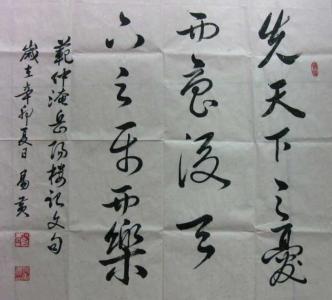 先天下之憂
而憂後天
下之樂而樂
範仲淹岳陽樓記文句
歲在辛卯夏日